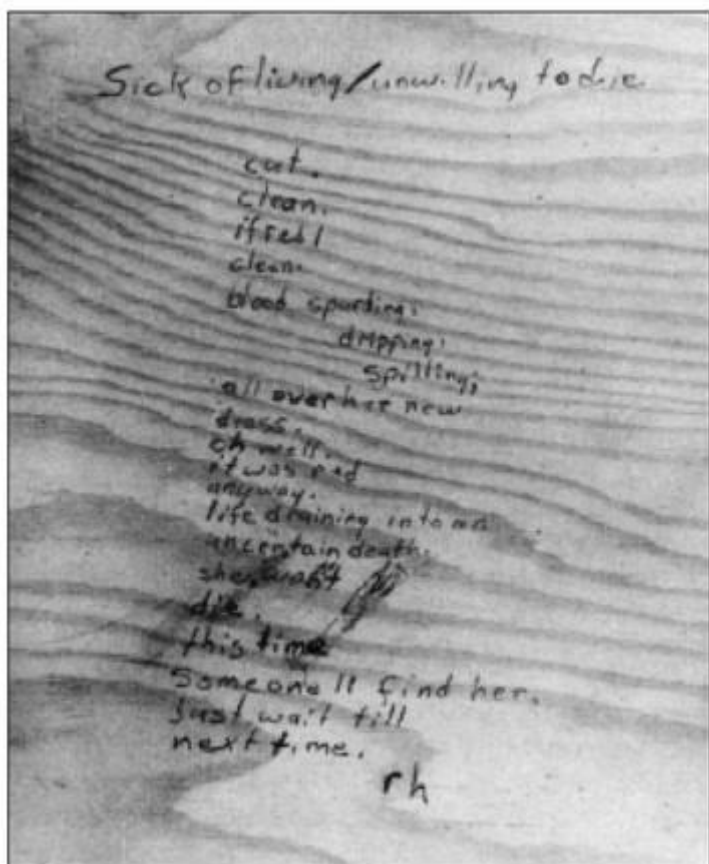 Sick of living/unwilling to die
cut.
clean.
if red/
clean.
blood spurting;
dripping;
spilling;
all over her new
dress.
oh well.
it was red
anyway.
life draining into an
uncertain death.
she won't
die.
this time
Someone'll find her.
Just wait till
next time.
rh